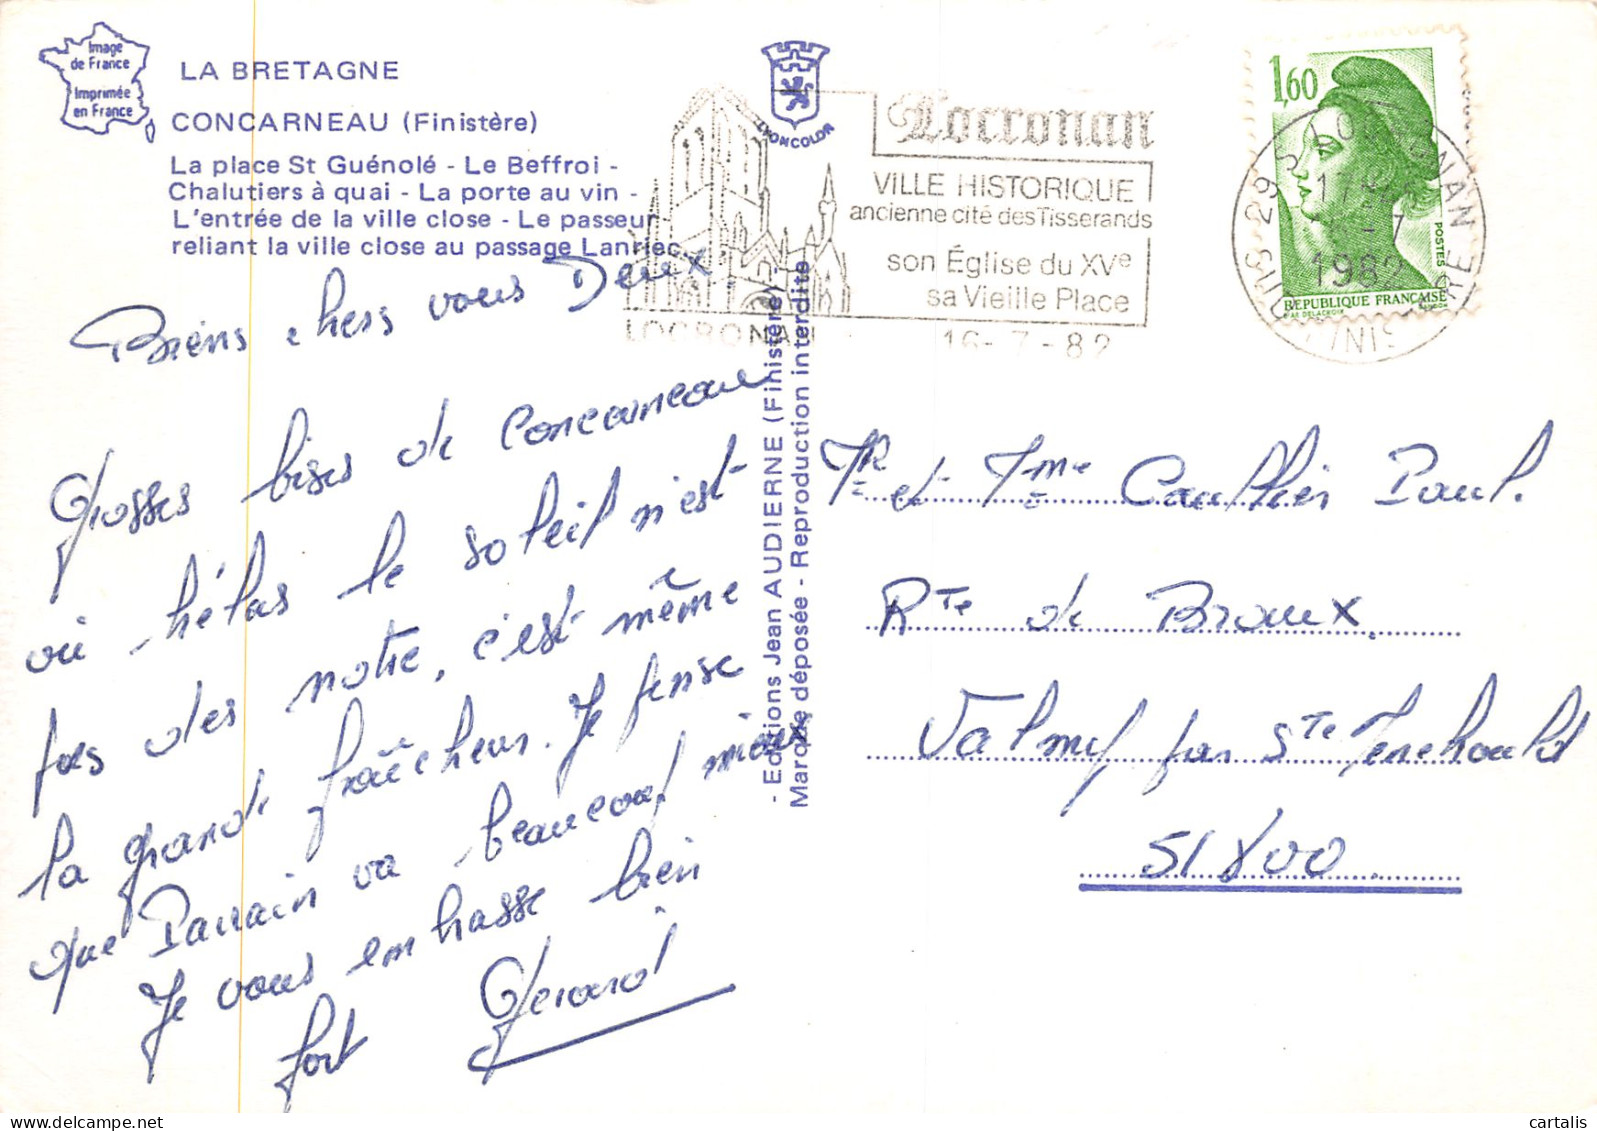 Image
de France
Imprimée
en France
LA BRETAGNE
CONCARNEAU (Finistère)
La place St Guénolé - Le Beffroi -
Chalutiers à quai - La porte au vin -
L'entrée de la ville close - Le passeur
reliant la ville close au passage Lanriec
LYONCOLOR
Locronan
VILLE HISTORIQUE
ancienne cité des Tisserands
son Église du XVe
sa Vieille Place
LOCRONAN
16-7-82
1,60
POSTES
REPUBLIQUE FRANÇAISE
1982
Biens chers vous Deux
Grosses bises de Concarneau
où hélas le soleil n'est
pas des notre, c'est même
la grande fraîcheur. Je pense
que Parrain va beaucoup mieux
Je vous embrasse bien
fort Gérard
- Editions Jean AUDIERNE (Finistère) -
Marque déposée - Reproduction interdite
Mr et Mme Caullier Paul.
Rte de Braux.
Valmy par Ste Menehould
51800
cartalis